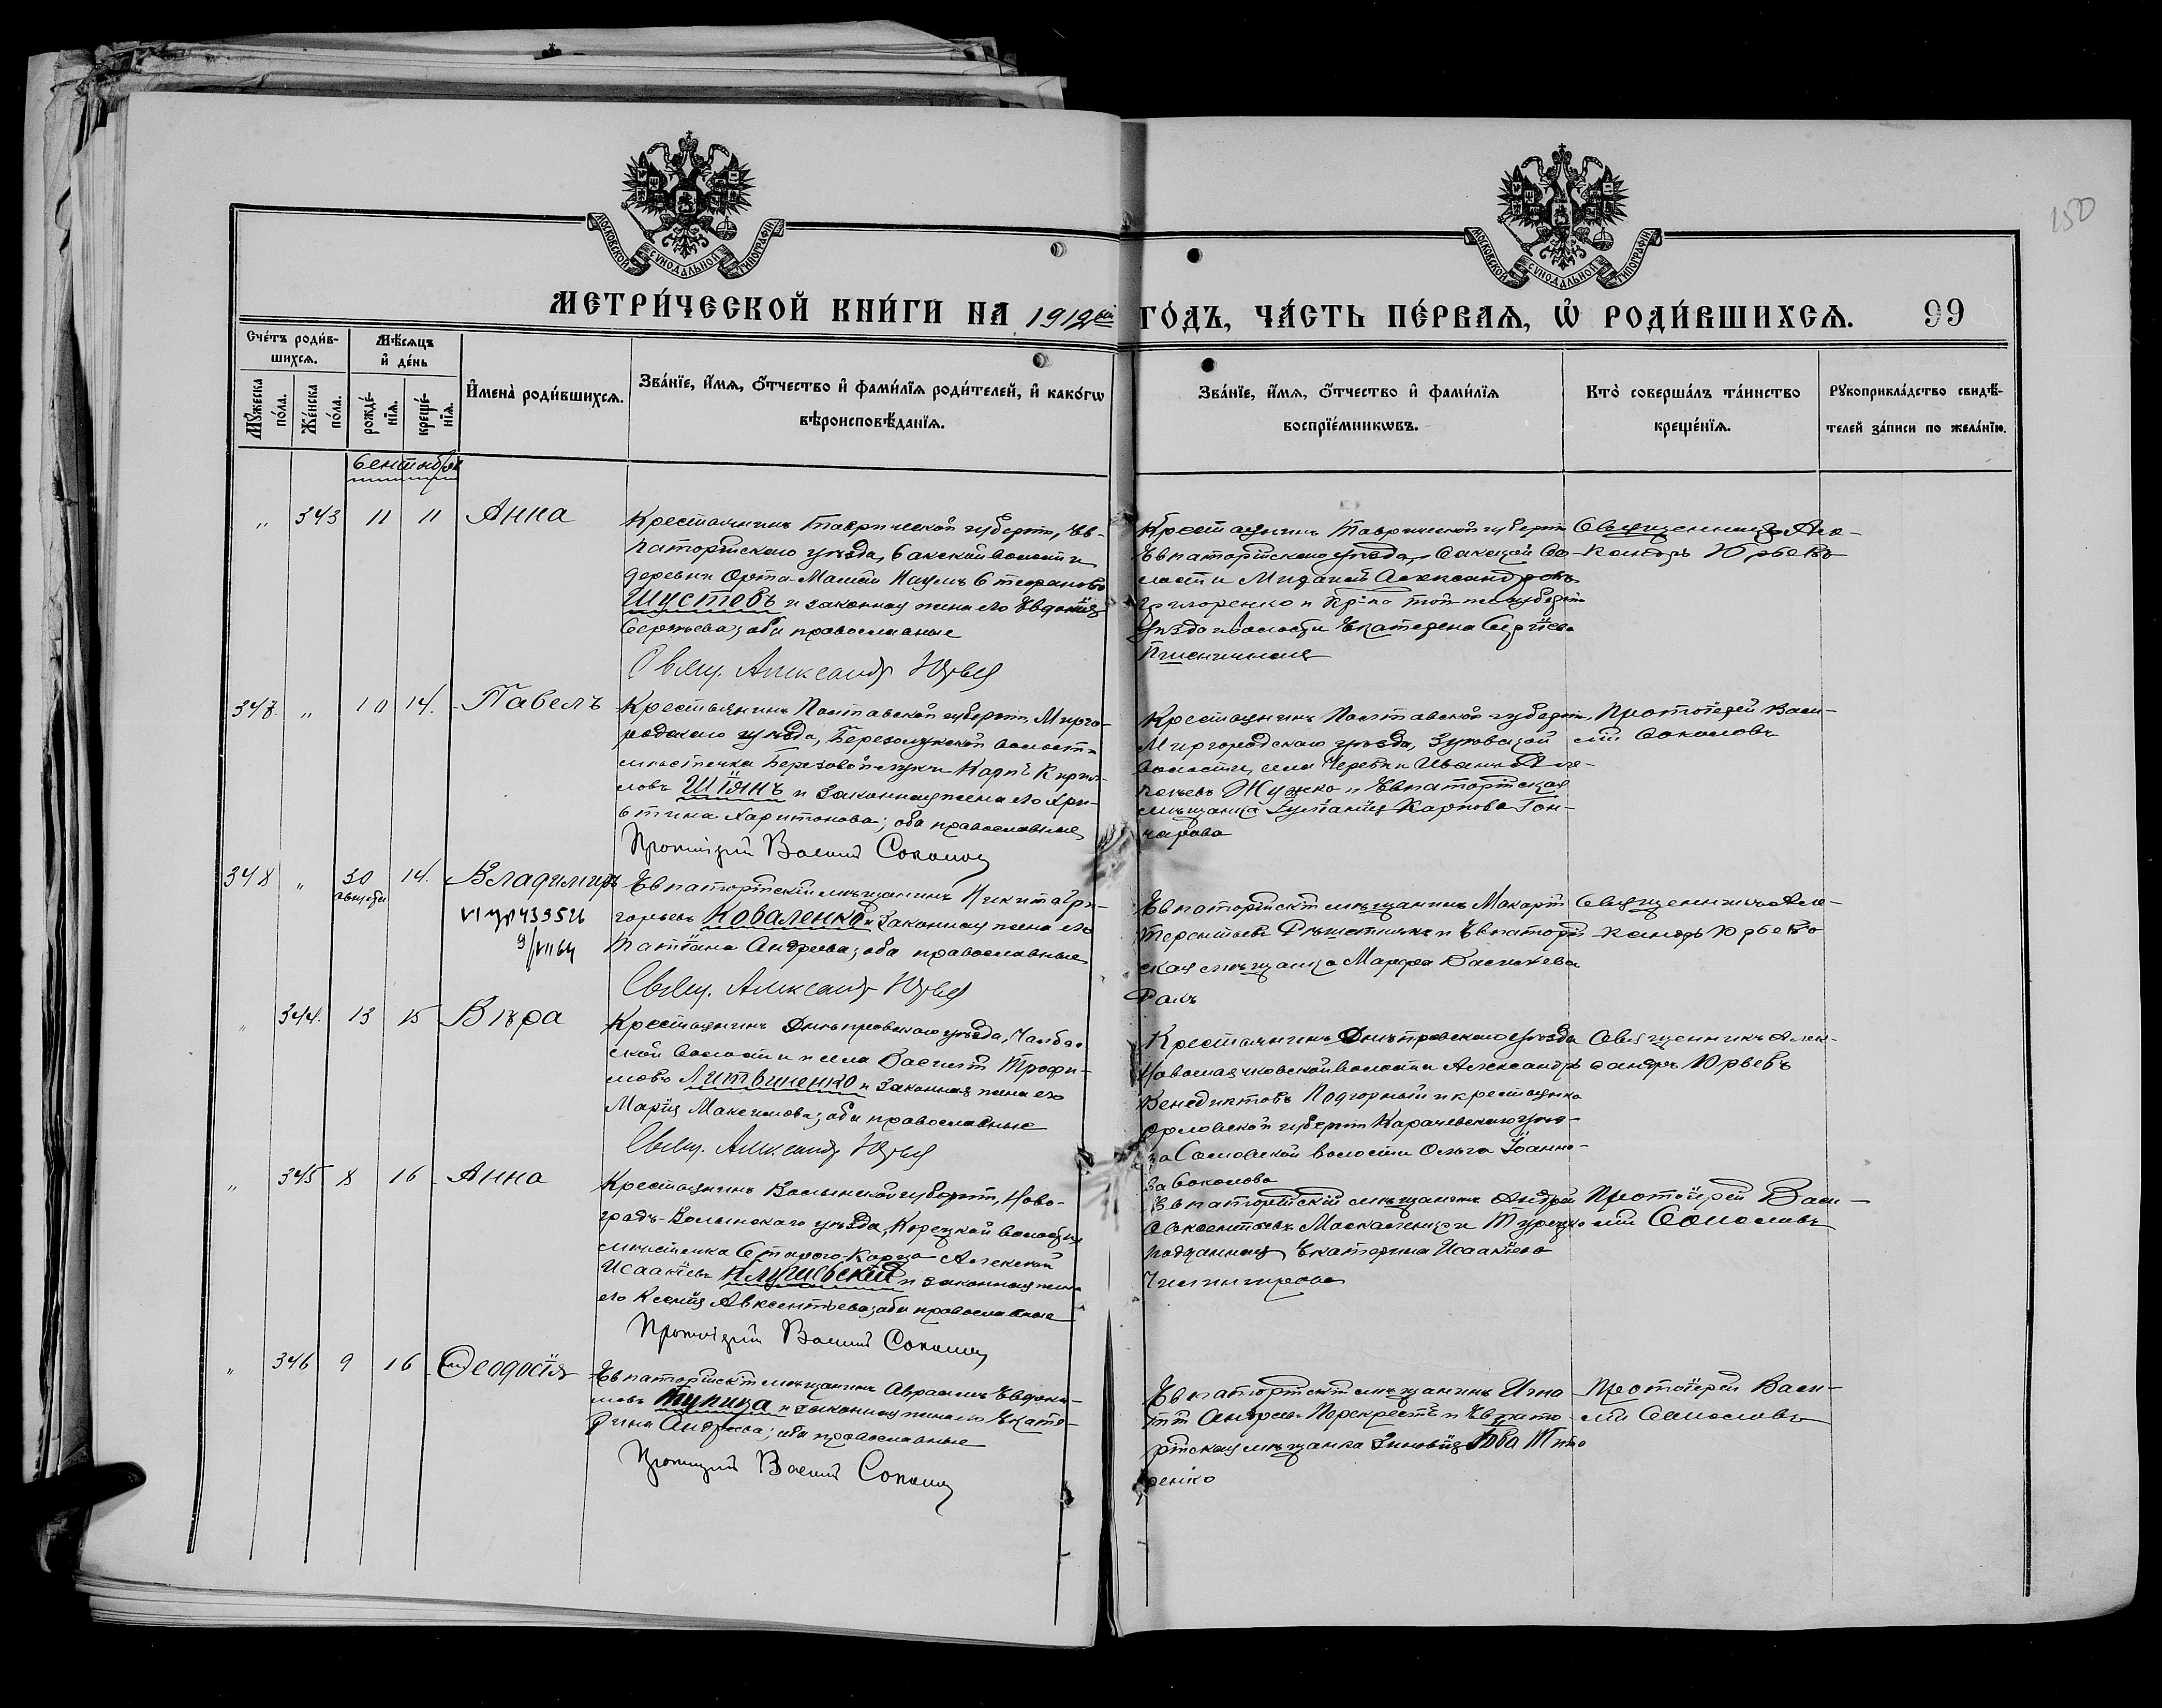 150
МОСКОВСКОЙ СѴНОДАЛЬНОЙ ТИПОГРАФІИ
МОСКОВСКОЙ СѴНОДАЛЬНОЙ ТИПОГРАФІИ
МЕТРИ́ЧЕСКОЙ КНИ́ГИ НА 1912ый ГО́ДЪ, ЧА́СТЬ ПЕ́РВАѦ, Ѡ҆ РОДИ́ВШИХСѦ. 99
Сче́тъ роди́вшихсѧ.
Мꙋ́жеска по́ла.
Же́нска по́ла.
Мѣ́сѧцъ и҆ де́нь
рожде́нїѧ.
креще́нїѧ.
И҆мена̀ роди́вшихсѧ.
Зва́нїе, и҆́мѧ, ѻ҆́тчество и҆ фами́лїѧ роди́телей, и҆ како́гѡ
вѣроисповѣ́данїѧ.
Зва́нїе, и҆́мѧ, ѻ҆́тчество и҆ фами́лїѧ
воспрїе́мникѡвъ.
Кто̀ соверша́лъ та́инство
креще́нїѧ.
Рꙋкоприкла́дство свидѣ́телей за́писи по жела́нїю.
Сентябрь
" 343 11 11 Анна
Крестьянинъ Таврической губерніи, Ев-
паторійскаго уѣзда, Сакской волости
деревни Орта-Мамай Наумъ Стефановъ
Шустовъ и законная жена его Евдокія
Сергѣева; оба православные
Свящ. Александр Юрьев
Крестьянинъ Таврической губерніи
Евпаторійскаго уѣзда, Сакской во-
лости Михаилъ Александровъ
Григоренко и кр-ка той же губерніи
уѣзда и волости Екатерина Сергіева
Пшеничная
Священникъ Але-
ксандръ Юрьевъ
347. " 10 14. Павелъ
Крестьянинъ Полтавской губерніи, Мирго-
родскаго уѣзда, Березолукской волости
мѣстечка Березовой луки Карпъ Кирил-
ловъ Шіянъ и законная жена его Хри-
стина Харитонова; оба православные
Протоіерей Василій Соколов
Крестьянинъ Полтавской губерніи,
Миргородскаго уѣзда, Зуевской
волости, села Черевки Иванъ
Жушко и Евпаторійская
мѣщанка Іуліанія Карпова Гон-
чарова
Протоіерей Васи-
лій Соколовъ
348 " 30 августа 14. Владиміръ
VI УР 433526
9/VII 64
Евпаторійскій мѣщанинъ Никита Гри-
горьевъ Коваленко и законная жена его
Татіана Андреева; оба православные
Свящ. Александр Юрьев
Евпаторійскій мѣщанинъ Макарій
Терентьевъ Рѣшетникъ и Евпаторій-
ская мѣщанка Марфа Васильева
Священникъ Але-
ксандръ Юрьевъ
" 344. 13 15 Вѣра
Крестьянинъ Днѣпровскаго уѣзда, Чалбас-
ской волости и села Василій Трофи-
мовъ Литвиненко и законная жена его
Марія Максимова; оба православные
Свящ. Александр Юрьев
Крестьянинъ Днѣпровскаго уѣзда
Новомаячковской волости Александръ
Венедиктовъ Подгорный и крестьянка
Орловской губерніи Карачевскаго уѣз-
да Самовской волости Ольга Іоанно-
ва Соколова
Священникъ Алек-
сандръ Юрьевъ
" 345 8 16 Анна
Крестьянинъ Волынской губерніи, Ново-
градъ-Волынскаго уѣзда, Корецкой волости
мѣстечка Стараго Корца Алексей
Исаакіевъ Клушевскій и законная жена
его Ксенія Авксентьева; оба православные
Протоіерей Василій Соколов
Евпаторійскій мѣщанинъ Андрей
Авксентьевъ Москаленко и Турецко
подданная Екатерина Исаакіева
Протоіерей Васи-
лій Соколовъ
" 346 9 16 Ѳеодосія
Евпаторійскій мѣщанинъ Авраамъ Евдоки-
мовъ Тупица и законная жена его Екате-
рина Андреева; оба православные
Протоіерей Василій Соколов
Евпаторійскій мѣщанинъ Игна-
тій Андреевъ Перекрестъ и Евпато-
рійская мѣщанка Зиновія Іова Тито
ренко
Протоіерей Васи-
лій Соколовъ